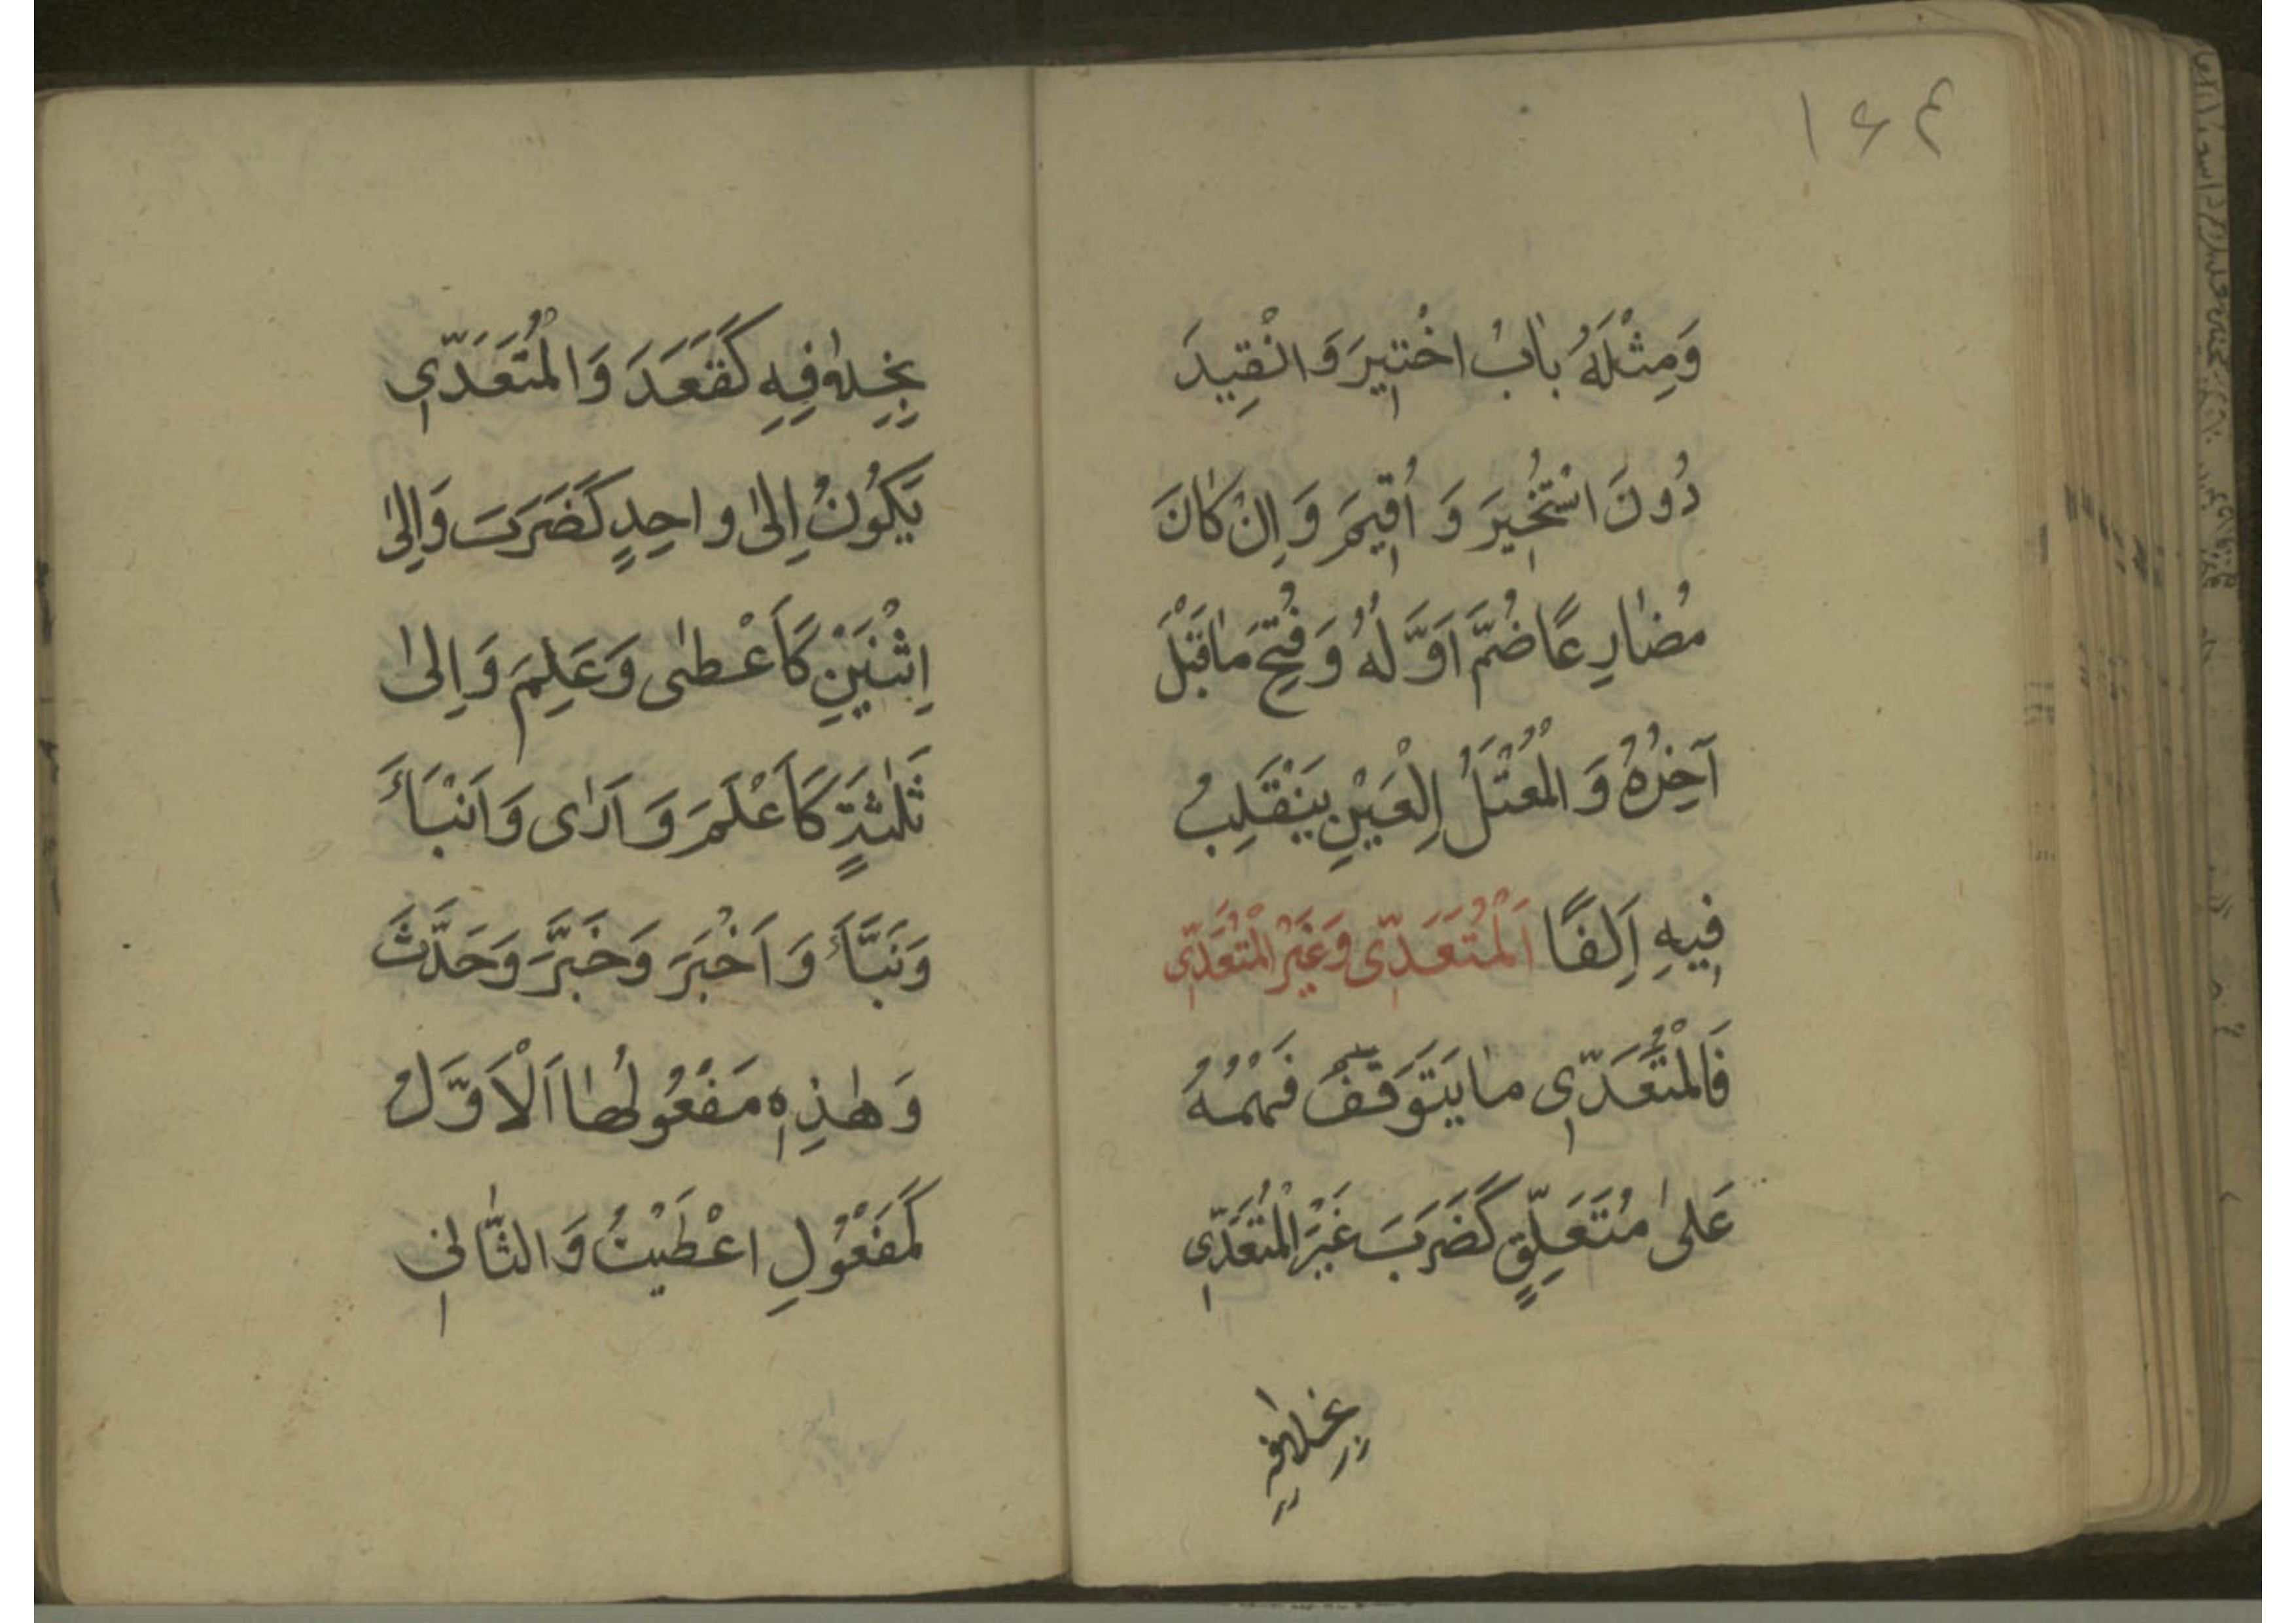 ١۶۴
وَمِثْلُهُ بابُ اخْتِيرَ وَانْقِيدَ
دُونَ اسْتُخِيرَ وَ اُقِيمَ وَ اِنْ كانَ
مُضارِعًا ضُمَّ اَوَّلُهُ وَفُتِحَ ماقَبْلَ
آخِرُهُ وَ الْمُعْتَلُّ الْعَيْنِ يَنْقَلِبُ
فِيهِ اَلِفًا اَلْمُتَعَدّى وَغَيْرُ الْمُتَعَدّى
فَالْمُتَعَدّى ما يَتَوَقَّفُ فَهْمُهُ
عَلىٰ مُتَعَلِّقٍ كَضَرَبَ غَيْرُ الْمُتَعَدّى
بِخِلافِهِ
بِخِلافِهِ كَقَعَدَ وَ الْمُتَعَدّى
يَكُونُ اِلىٰ واحِدٍ كَضَرَبَ وَاِلىٰ
اِثْنَيْنِ كَاَعْطىٰ وَعَلِمَ وَ اِلىٰ
ثَلٰثَةٍ كَاَعْلَمَ وَ اَرٰى وَ اَنْبَأَ
وَنَبَّأَ وَ اَخْبَرَ وَخَبَّرَ وَحَدَّثَ
وَ هٰذِهِ مَفْعُولُها اَلْاَوَّلُ
كَمَفْعُولِ اعْطَيْتُ وَ الثّانى